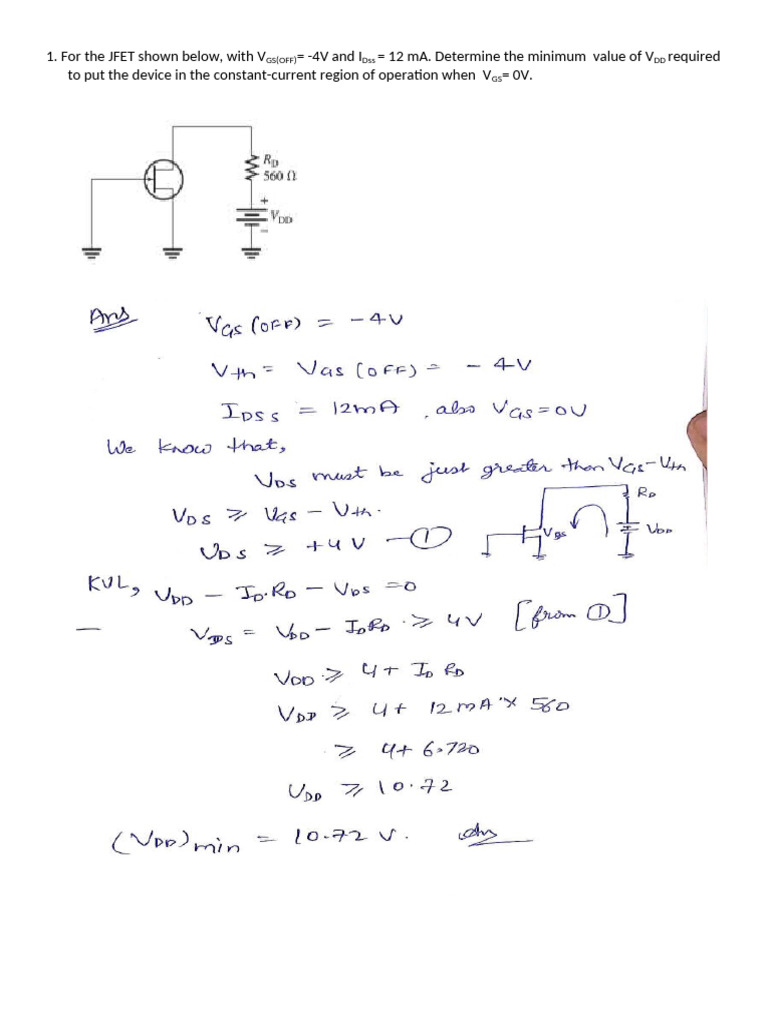 1. For the JFET shown below, with VGS(OFF)= -4V and IDss = 12 mA. Determine the minimum value of VDD required
to put the device in the constant-current region of operation when VGS= 0V.
RD
560 Ω
+
VDD
-
Ans VGS (OFF) = -4V
Vth = VGS (OFF) = - 4V
IDSS = 12mA , also VGS=0V
We know that,
VDS must be just greater than VGS-Vth
VDS ⩾ VGS - Vth.
RD
VDD
Vgs
VDS ⩾ +4V —①
KVL, VDD - ID.RD - VDS =0
— VDS = VDD - IDRD ⩾ 4V [from ①]
VDD ⩾ 4+ ID RD
VDD ⩾ 4+ 12mA × 560
⩾ 4+ 6.720
VDD ⩾ 10.72
(VDD)min = 10.72 V. Ans